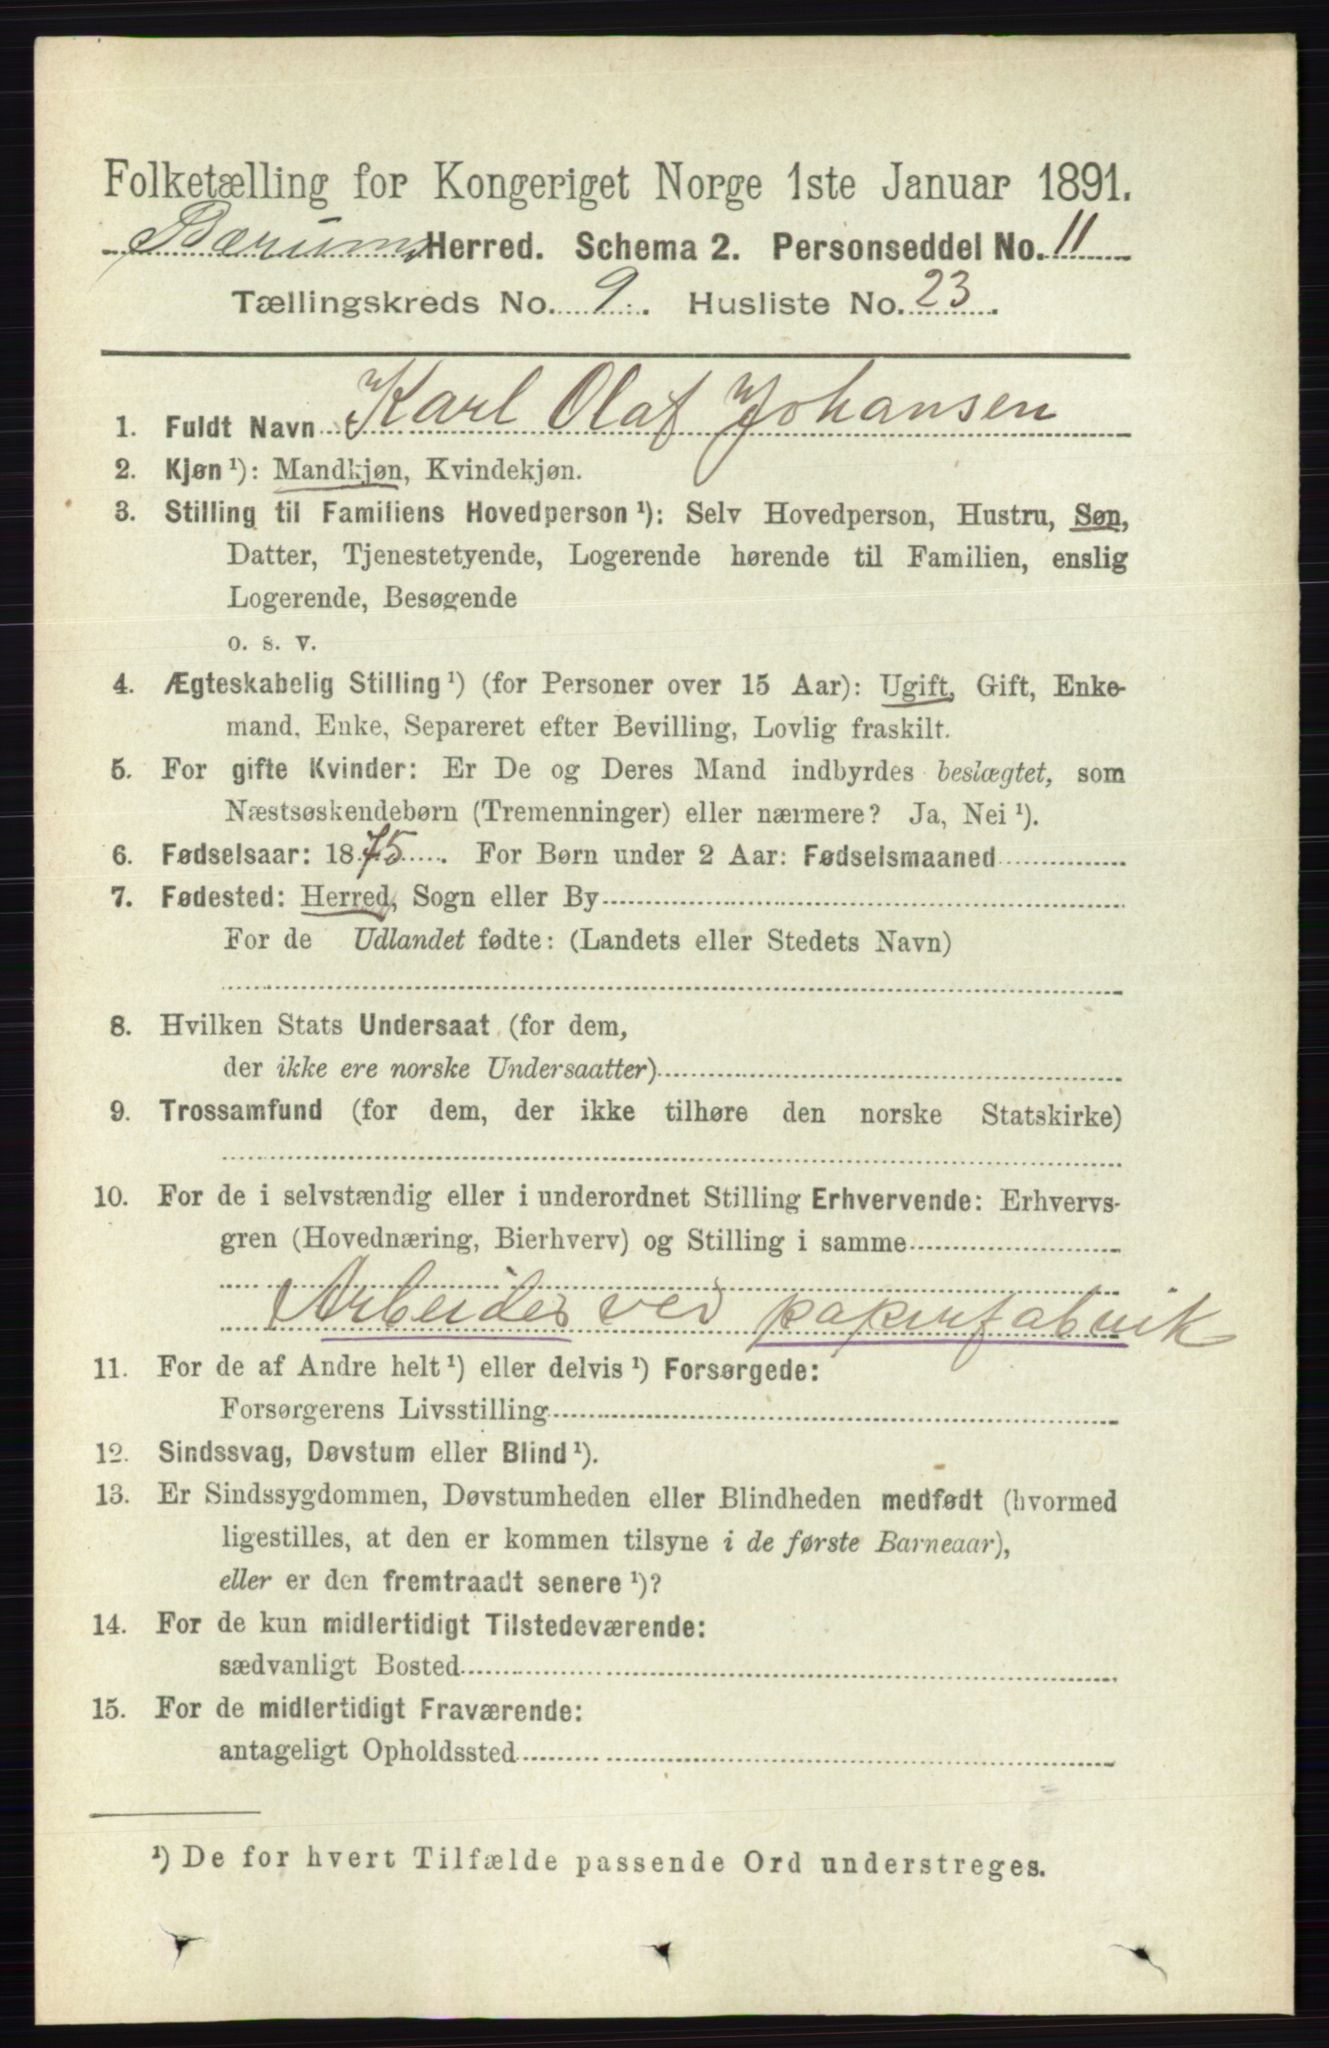 Folketælling for Kongeriget Norge 1ste Januar 1891.
Bærums Herred. Schema 2. Personseddel No. 11
Tællingskreds No. 9. Husliste No. 23.
1. Fuldt Navn Karl Olaf Johansen
2. Kjøn ¹): Mandkjøn, Kvindekjøn.
3. Stilling til Familiens Hovedperson ¹): Selv Hovedperson, Hustru, Søn,
Datter, Tjenestetyende, Logerende hørende til Familien, enslig
Logerende, Besøgende
o. s. v.
4. Ægteskabelig Stilling ¹) (for Personer over 15 Aar): Ugift, Gift, Enke-
mand, Enke, Separeret efter Bevilling, Lovlig fraskilt.
5. For gifte Kvinder: Er De og Deres Mand indbyrdes beslægtet, som
Næstsøskendebørn (Tremenninger) eller nærmere? Ja, Nei ¹).
6. Fødselsaar: 1875. For Børn under 2 Aar: Fødselsmaaned
7. Fødested: Herred, Sogn eller By
For de Udlandet fødte: (Landets eller Stedets Navn)
8. Hvilken Stats Undersaat (for dem,
der ikke ere norske Undersaatter)
9. Trossamfund (for dem, der ikke tilhøre den norske Statskirke)
10. For de i selvstændig eller i underordnet Stilling Erhvervende: Erhvervs-
gren (Hovednæring, Bierhverv) og Stilling i samme
Arbeider ved papirfabrik
11. For de af Andre helt ¹) eller delvis ¹) Forsørgede:
Forsørgerens Livsstilling
12. Sindssvag, Døvstum eller Blind ¹).
13. Er Sindssygdommen, Døvstumheden eller Blindheden medfødt (hvormed
ligestilles, at den er kommen tilsyne i de første Barneaar),
eller er den fremtraadt senere ¹)?
14. For de kun midlertidigt Tilstedeværende:
sædvanligt Bosted
15. For de midlertidigt Fraværende:
antageligt Opholdssted
¹) De for hvert Tilfælde passende Ord understreges.